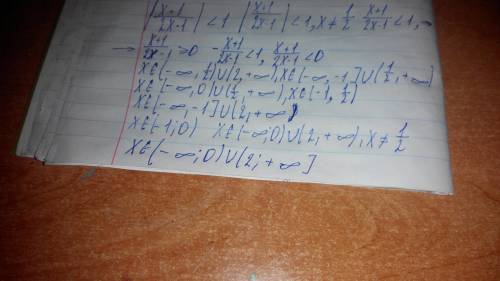 |x+1/2x-1| < 1 |x+1/2x-1| < 1, x ≠ 1/2 x+1/2x-1 < 1,
→ x+1/2x-1 ≥ 0 - x+1/2x-1 < 1, x+1/2x-1 < 0
x∈(-∞, 1/2)∪(2, +∞), x∈(-∞, -1]∪(1/2, +∞)
x∈(-∞, 0)∪(1/2, +∞), x∈(-1, 1/2)
x∈(-∞, -1]∪(2, +∞)
x∈(-1; 0) x∈(-∞; 0)∪(2; +∞), x ≠ 1/2
x∈(-∞; 0)∪(2; +∞]